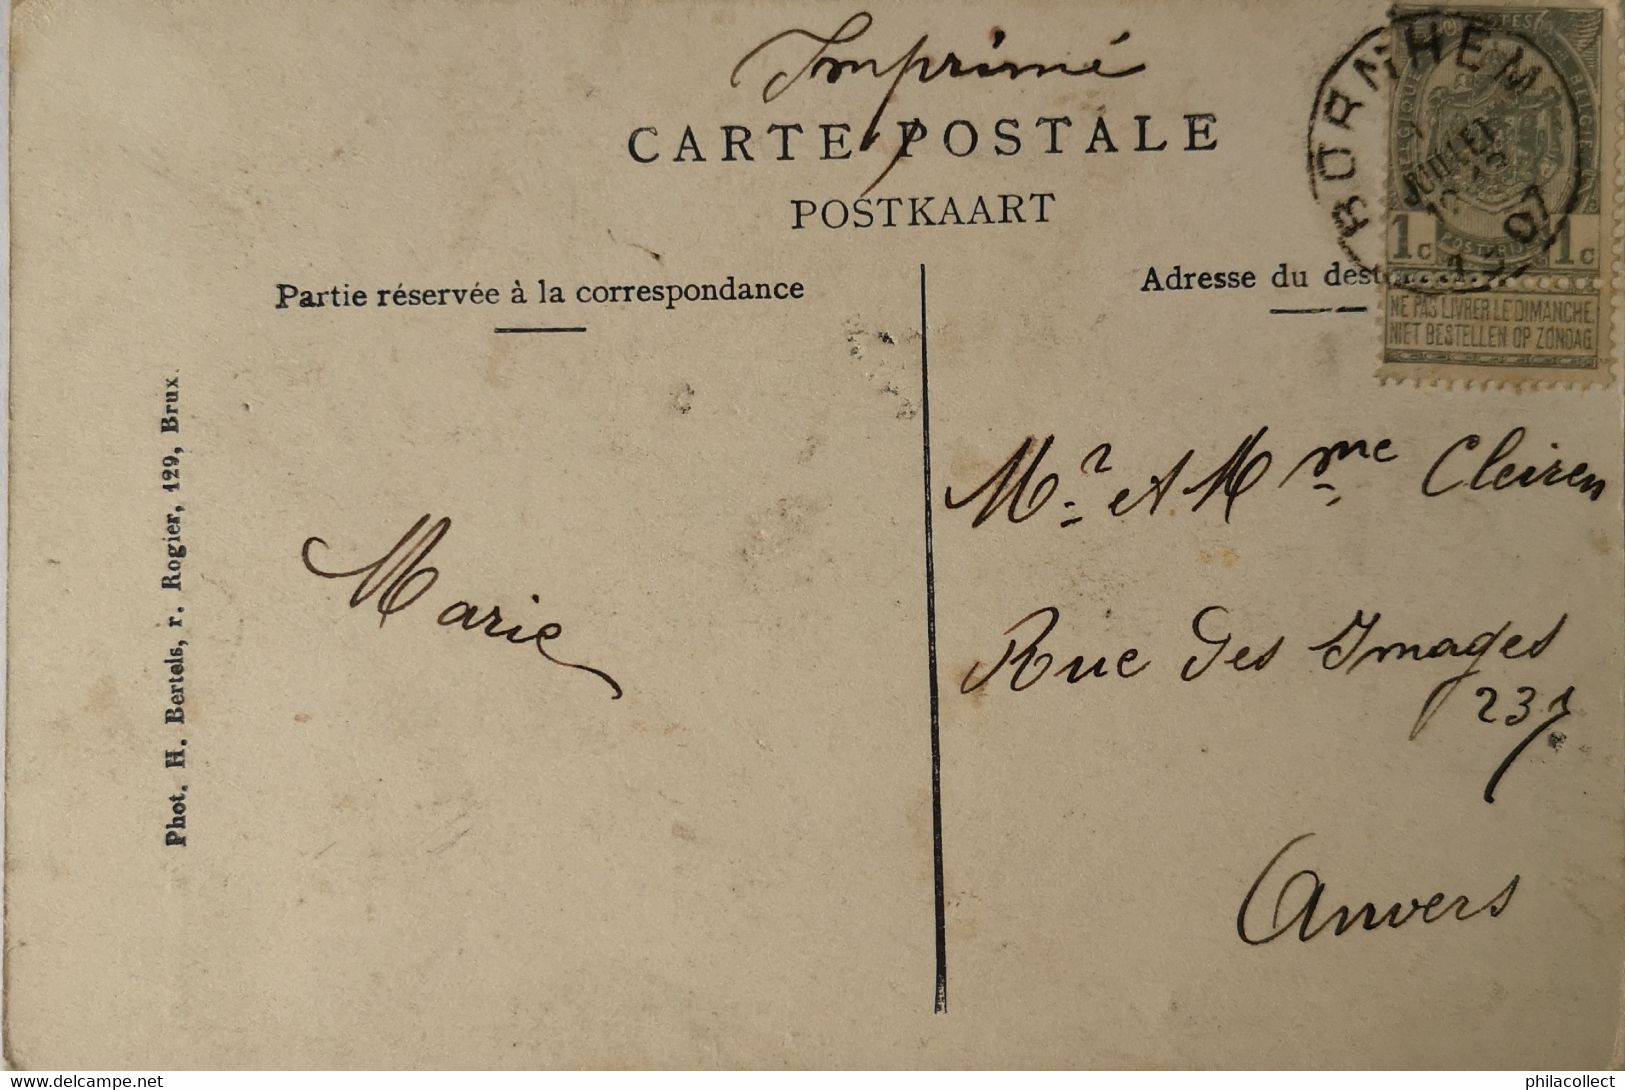 Imprimé
CARTE POSTALE
POSTKAART
BORNHEM
JUILLET
07
BELGIQUE BELGIE
1c 1c
NE PAS LIVRER LE DIMANCHE
NIET BESTELLEN OP ZONDAG
Partie réservée à la correspondance
Adresse du dest
Phot. H. Bertels, r. Rogier, 129, Brux.
Mr. et Mme Cleiren
Marie
Rue des Images
231
Anvers
www.delcampe.net
philacollect